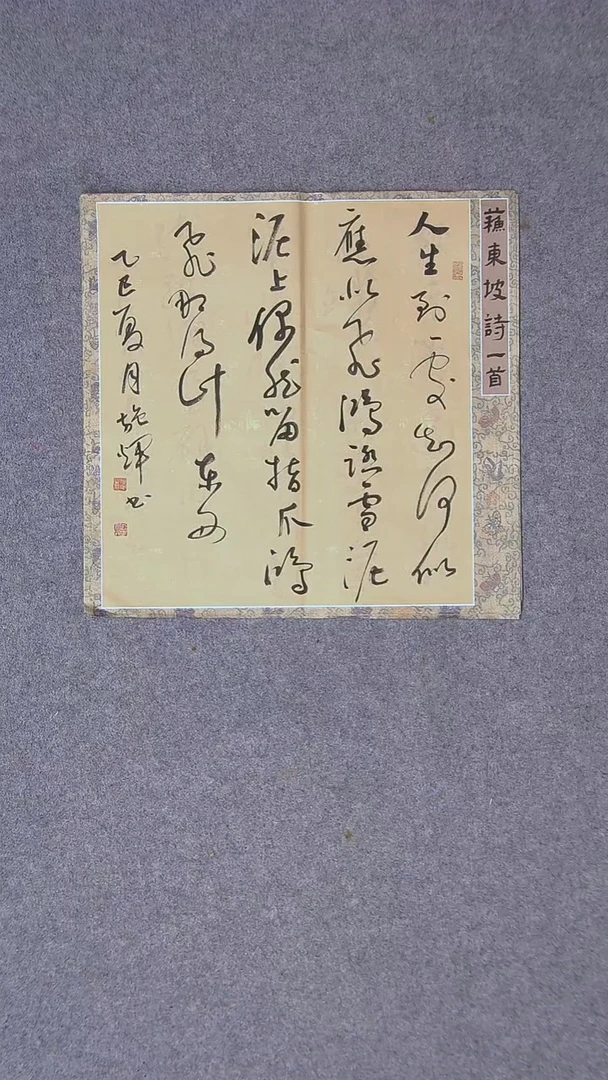 蘇東坡詩一首
人生到處知何似
應似飛鴻踏雪泥
泥上偶然留指爪鴻
飛那復計東西
乙巳夏月施輝书